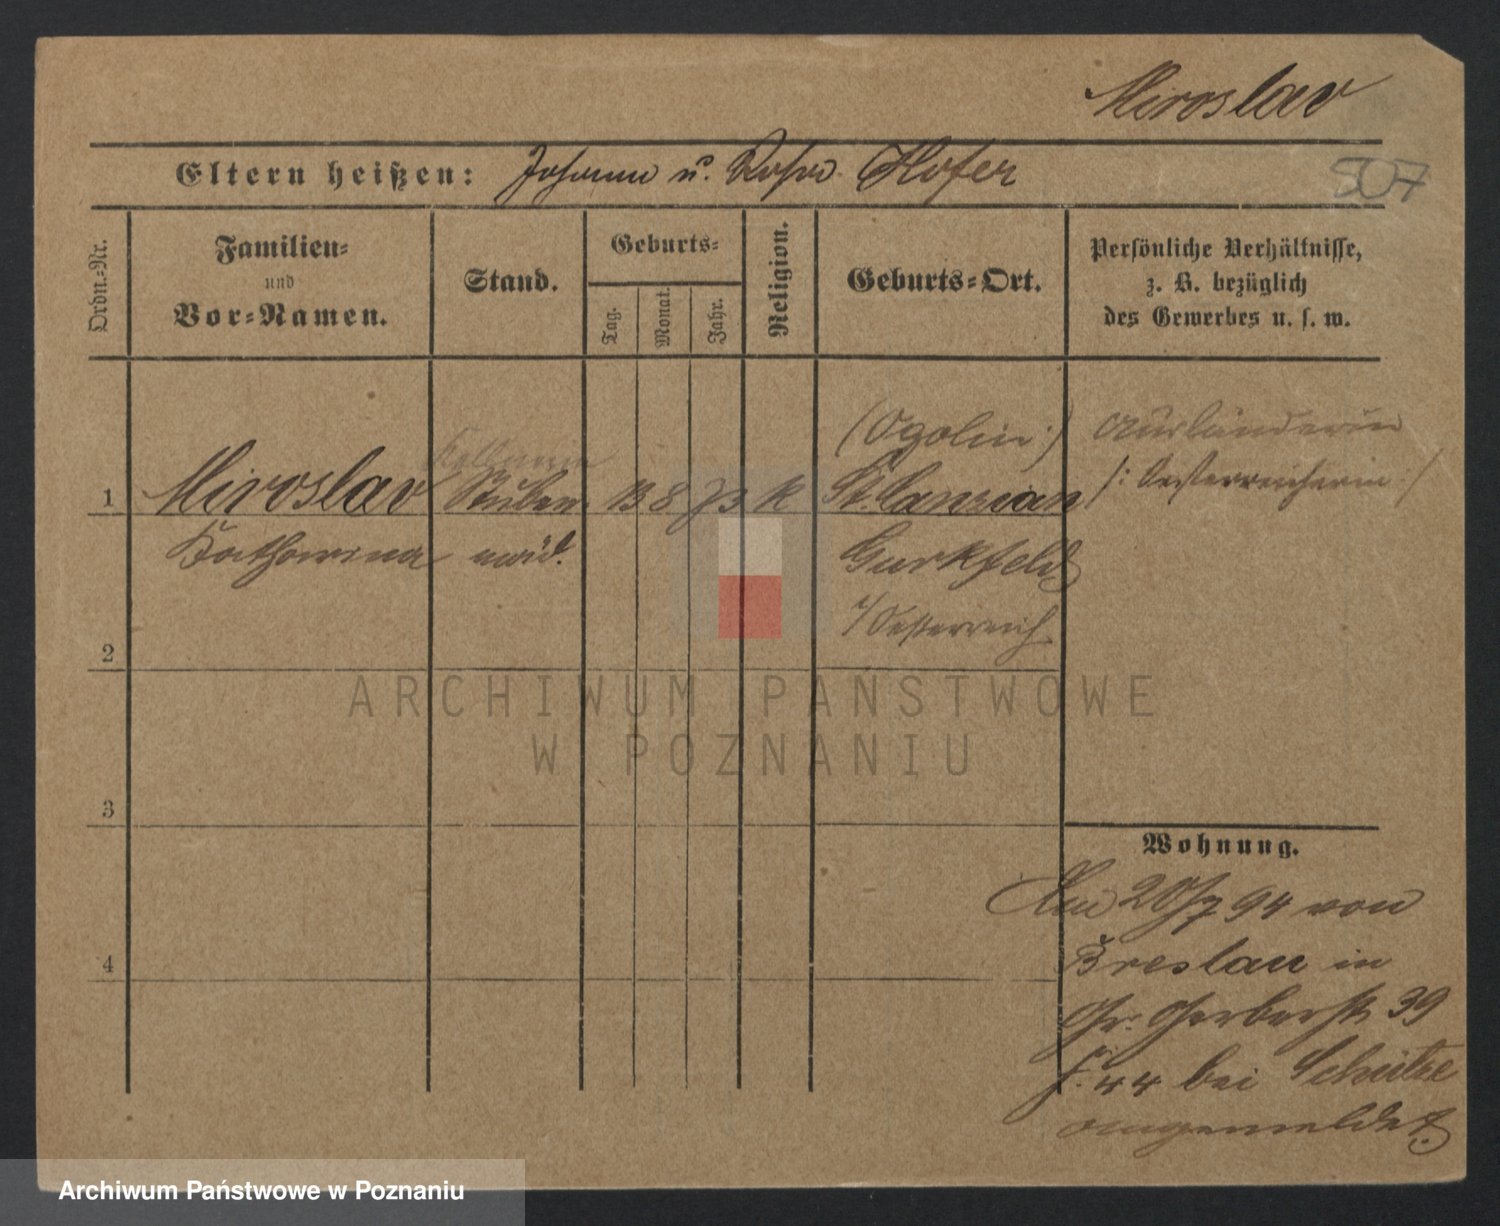 Miroslav
507
Eltern heißen: Johann u. Hofer
Ordn.-Nr.
Familien-
und
Vor-Namen.
Stand.
Geburts-
Tag.
Monat.
Jahr.
Religion.
Geburts-Ort.
Persönliche Verhältnisse,
z. B. bezüglich
des Gewerbes u. s. w.
(Ogolin.) Ausländerin
Kellnerin
1 Miroslav Stuben 13 8 73 k St. Canzian /: Oesterreicherin :/
Katharina mäd. Gurkfeld
i/Oesterreich
2
ARCHIWUM PAŃSTWOWE
W POZNANIU
3
Wohnung.
Am 20/7 94 von
4 Breslau in
Gr. Gerberstr 39
f. 44 bei Schulze
angemeldet.
Archiwum Państwowe w Poznaniu